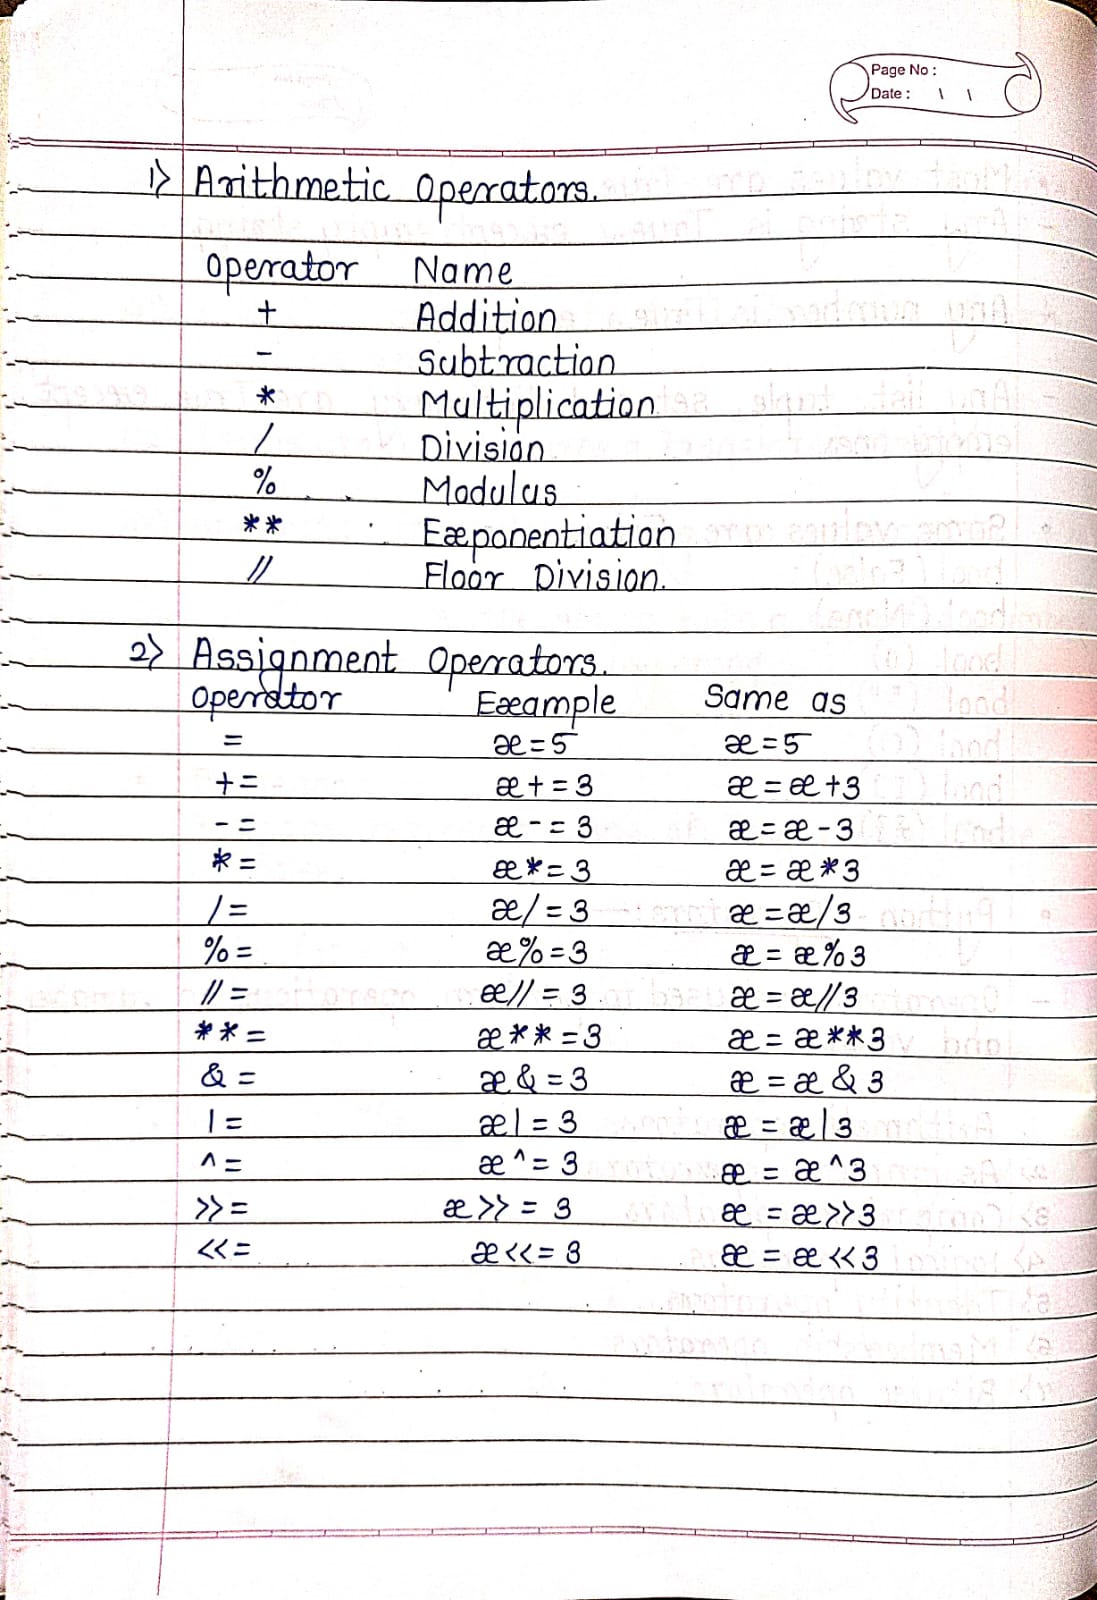 Page No :
Date : \ \
1> Arithmetic Operators.
Operator Name
+ Addition
- Subtraction
* Multiplication
/ Division
% Modulus
** Exponentiation
// Floor Division.
2> Assignment Operators.
Operator Example Same as
= x=5 x=5
+= x+=3 x=x+3
-= x-=3 x=x-3
*= x*=3 x=x*3
/= x/=3 x=x/3
%= x%=3 x=x%3
//= x//=3 x=x//3
**= x**=3 x=x**3
&= x&=3 x=x&3
|= x|=3 x=x|3
^= x^=3 x=x^3
>>= x>>=3 x=x>>3
<<= x<<=3 x=x<<3